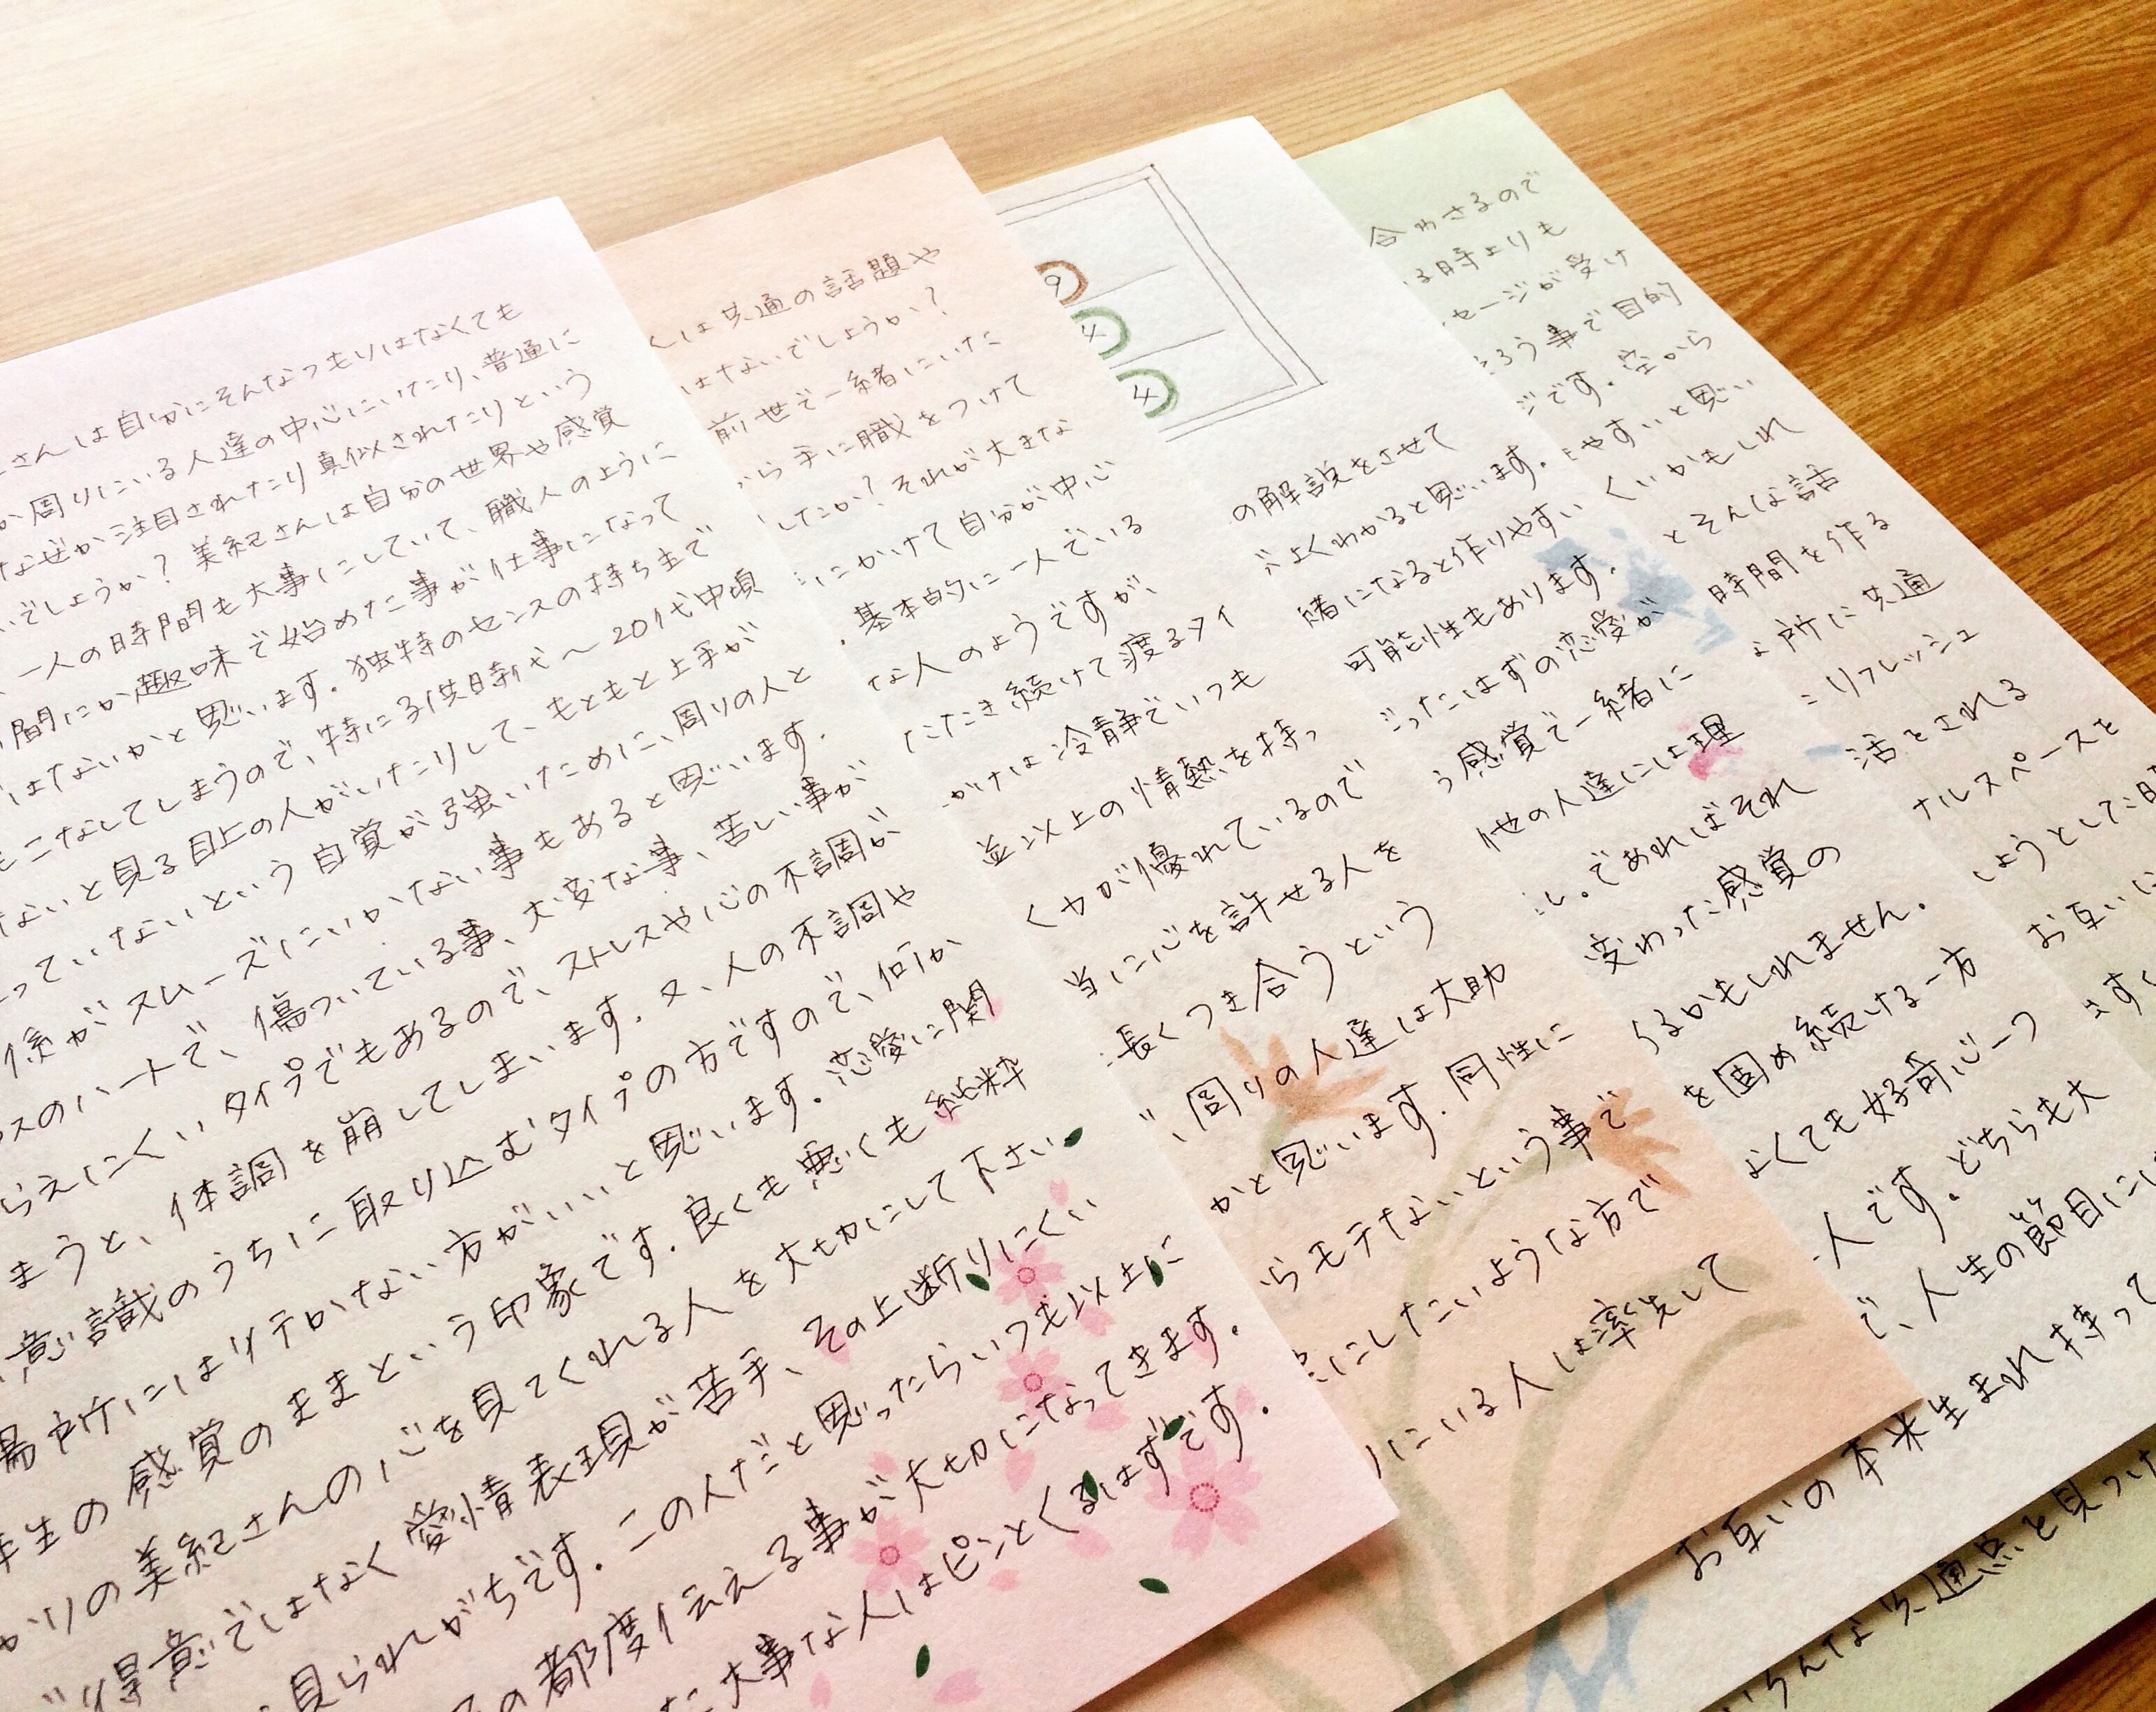 さんは自分にそんなつもりはなくても
周りにいる人達の中心にいたり、普通に
なぜか注目されたり真似されたりという
いでしょうか？美紀さんは自分の世界や感覚
一人の時間も大事にしていて、職人のように
間にか趣味で始めた事が仕事になって
はないかと思います。独特のセンスの持ち主で
こなしてしまうので、特に子供時代〜20代中頃
ないと見る目上の人がいたりして、もともと上手が
っていないという自覚が強いために、周りの人と
係がスムーズにいかない事もあると思います。
スのハートで、傷ついている事、大変な事、苦しい事が
らえにくいタイプでもあるので、ストレスや心の不調が
まうと、体調を崩してしまいます。又、人の不調や
意識のうちに取り込むタイプの方ですので、何か
場所には行かない方がいいと思います。恋愛に関
生の感覚のままという印象です。良くも悪くも純粋
かりの美紀さんの心を見てくれる人を大切にして下さい
得意ではなく愛情表現が苦手、その上断りにくい
見られがちです。この人だと思ったらいつも以上に
の都度伝える事が大切になってきます。
た大事な人はピンとくるはずです。
くは共通の話題や
はないでしょうか？
前世で一緒にいた
ら手に職をつけて
したか？それが大きな
にかけて自分が中心
基本的に一人でいる
な人のようですが、
たたき続けて渡るタイ
がけは冷静でいつも
並以上の情熱を持っ
く力が優れているので
当に心を許せる人を
長くつき合うという
周りの人達は大助
かと思います。同性に
らモテないという事で
にしたいような方で
にいる人は率先して
9
4
4
の解説をさせて
がよくわかると思います。
緒になると作りやすい
可能性もあります。
だったはずの恋愛が
う感覚で一緒に
他の人達には理
し。であればそれ
変わった感覚の
くるかもしれません。
を固め続ける一方
よくても好奇心一つ
人です。どちらも大
で、人生の節目には
お互いの本来生まれ持って
合わさるので
る時よりも
セージが受け
そろう事で目的
ジです。空から
やすいと思い
くいかもしれ
とそんな話
時間を作る
な所に共通
にリフレッシュ
活をされる
ナルスペースを
しようとして
お互いに
ます
いろんな共通点を見つけ